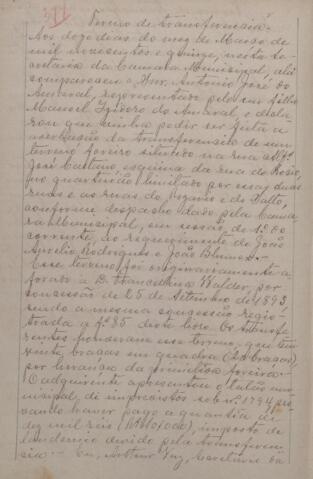 Termo de transferencia.
Aos doze dias do mez de Março de
mil novecentos e quinze, nesta se
cretaria da Camara Municipal, ahi
compareceu o Snr. Antonio José do
Amaral, representado pelo seu filho
Manoel Izidoro do Amaral, e decla
rou que vinha pedir ser feita a
da transferencia de um
terreno foreiro situado na rua
José Caetano, esquina da rua do Rosio,
no quarteirão limitado por essas duas
ruas e as ruas do e do Salto,
conforme despacho dado pela Cama
ra Municipal, em sessão de 1º do
corrente, ao requerimento de João
Aurelio Rodrigues e João Blumer.
Esse terreno foi originariamente a
forado a D. Francelina Walder, por
concessão de 25 de Setembro de 1893,
sendo a mesma concessão regis
trada a fs. 35 deste livro. Os transfe
rentes houveram esse terreno, que tem
vinte braças em quadra (20 braças),
por herança da primitiva foreira.
O adquirente apresentou o talão mu
nicipal de impostos sob nº 1794 pro
vando haver pago a quantia de
dez mil reis (10$000), imposto de
laudemio devido pela transferen
cia. Eu, Arthur Vaz, Secretario da